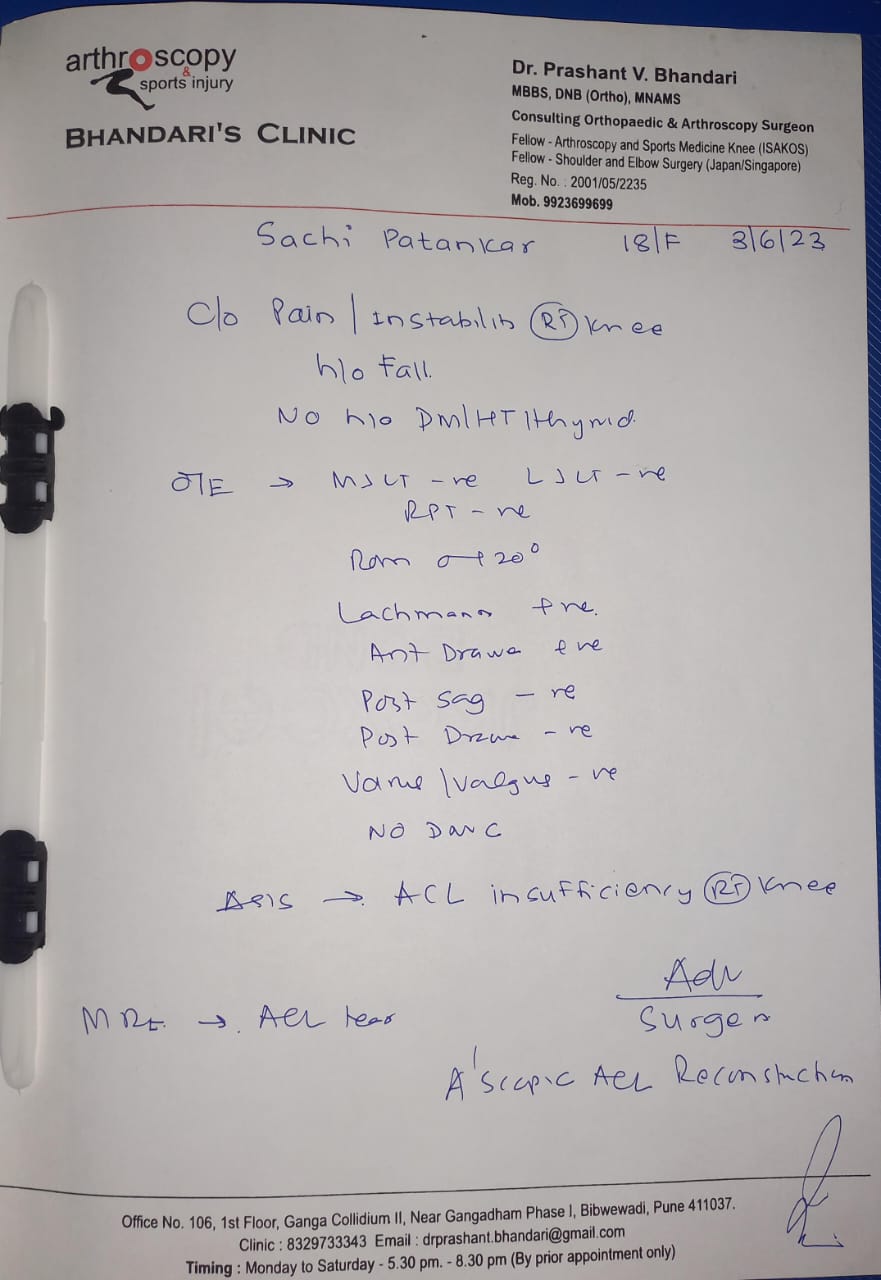 arthroscopy
&
sports injury
BHANDARI'S CLINIC
Dr. Prashant V. Bhandari
MBBS, DNB (Ortho), MNAMS
Consulting Orthopaedic & Arthroscopy Surgeon
Fellow - Arthroscopy and Sports Medicine Knee (ISAKOS)
Fellow - Shoulder and Elbow Surgery (Japan/Singapore)
Reg. No. : 2001/05/2235
Mob. 9923699699
Sachi Patankar 18/F 3/6/23
C/o Pain / Instability RT Knee
h/o Fall.
No h/o DM/HT/thyroid.
O/E → MJLT -ve LJLT -ve
RPT -ve
Rom 0-120°
Lachmans +ve.
Ant Drawer +ve
Post Sag -ve
Post Drawer -ve
Varus/Valgus -ve
NO
→ ACL insufficiency RT Knee
MRI → ACL tear
Adv
Surgery
A'scopic ACL Reconstruction
Office No. 106, 1st Floor, Ganga Collidium II, Near Gangadham Phase I, Bibwewadi, Pune 411037.
Clinic : 8329733343 Email : drprashant.bhandari@gmail.com
Timing : Monday to Saturday - 5.30 pm. - 8.30 pm (By prior appointment only)